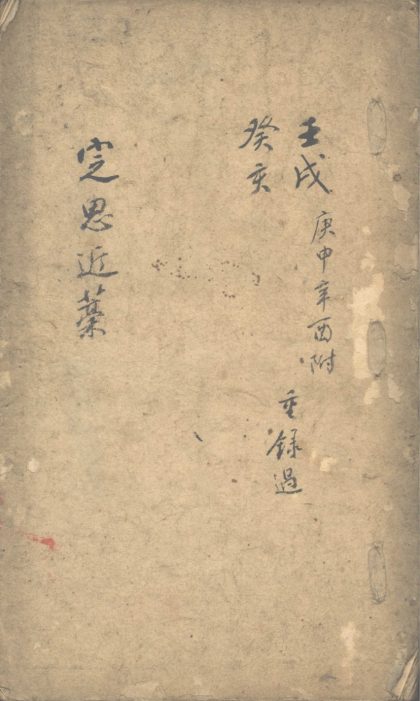 壬戌
癸亥
庚申辛酉附
重録過
思近藁